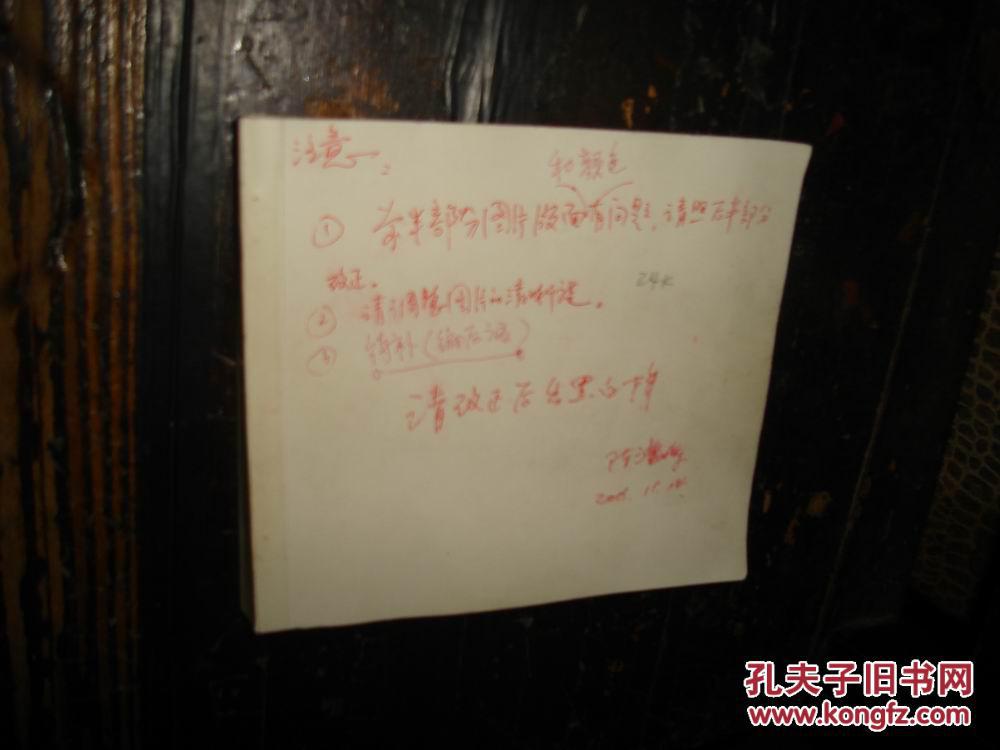 注意：
和颜色
① 前半部分图片版面有问题，请照后半部分
改正。
② 请调整图片的清晰度。
24K
③ 待补（编后语）
请改正后出黑白样
孔夫子旧书网
www.kongfz.com